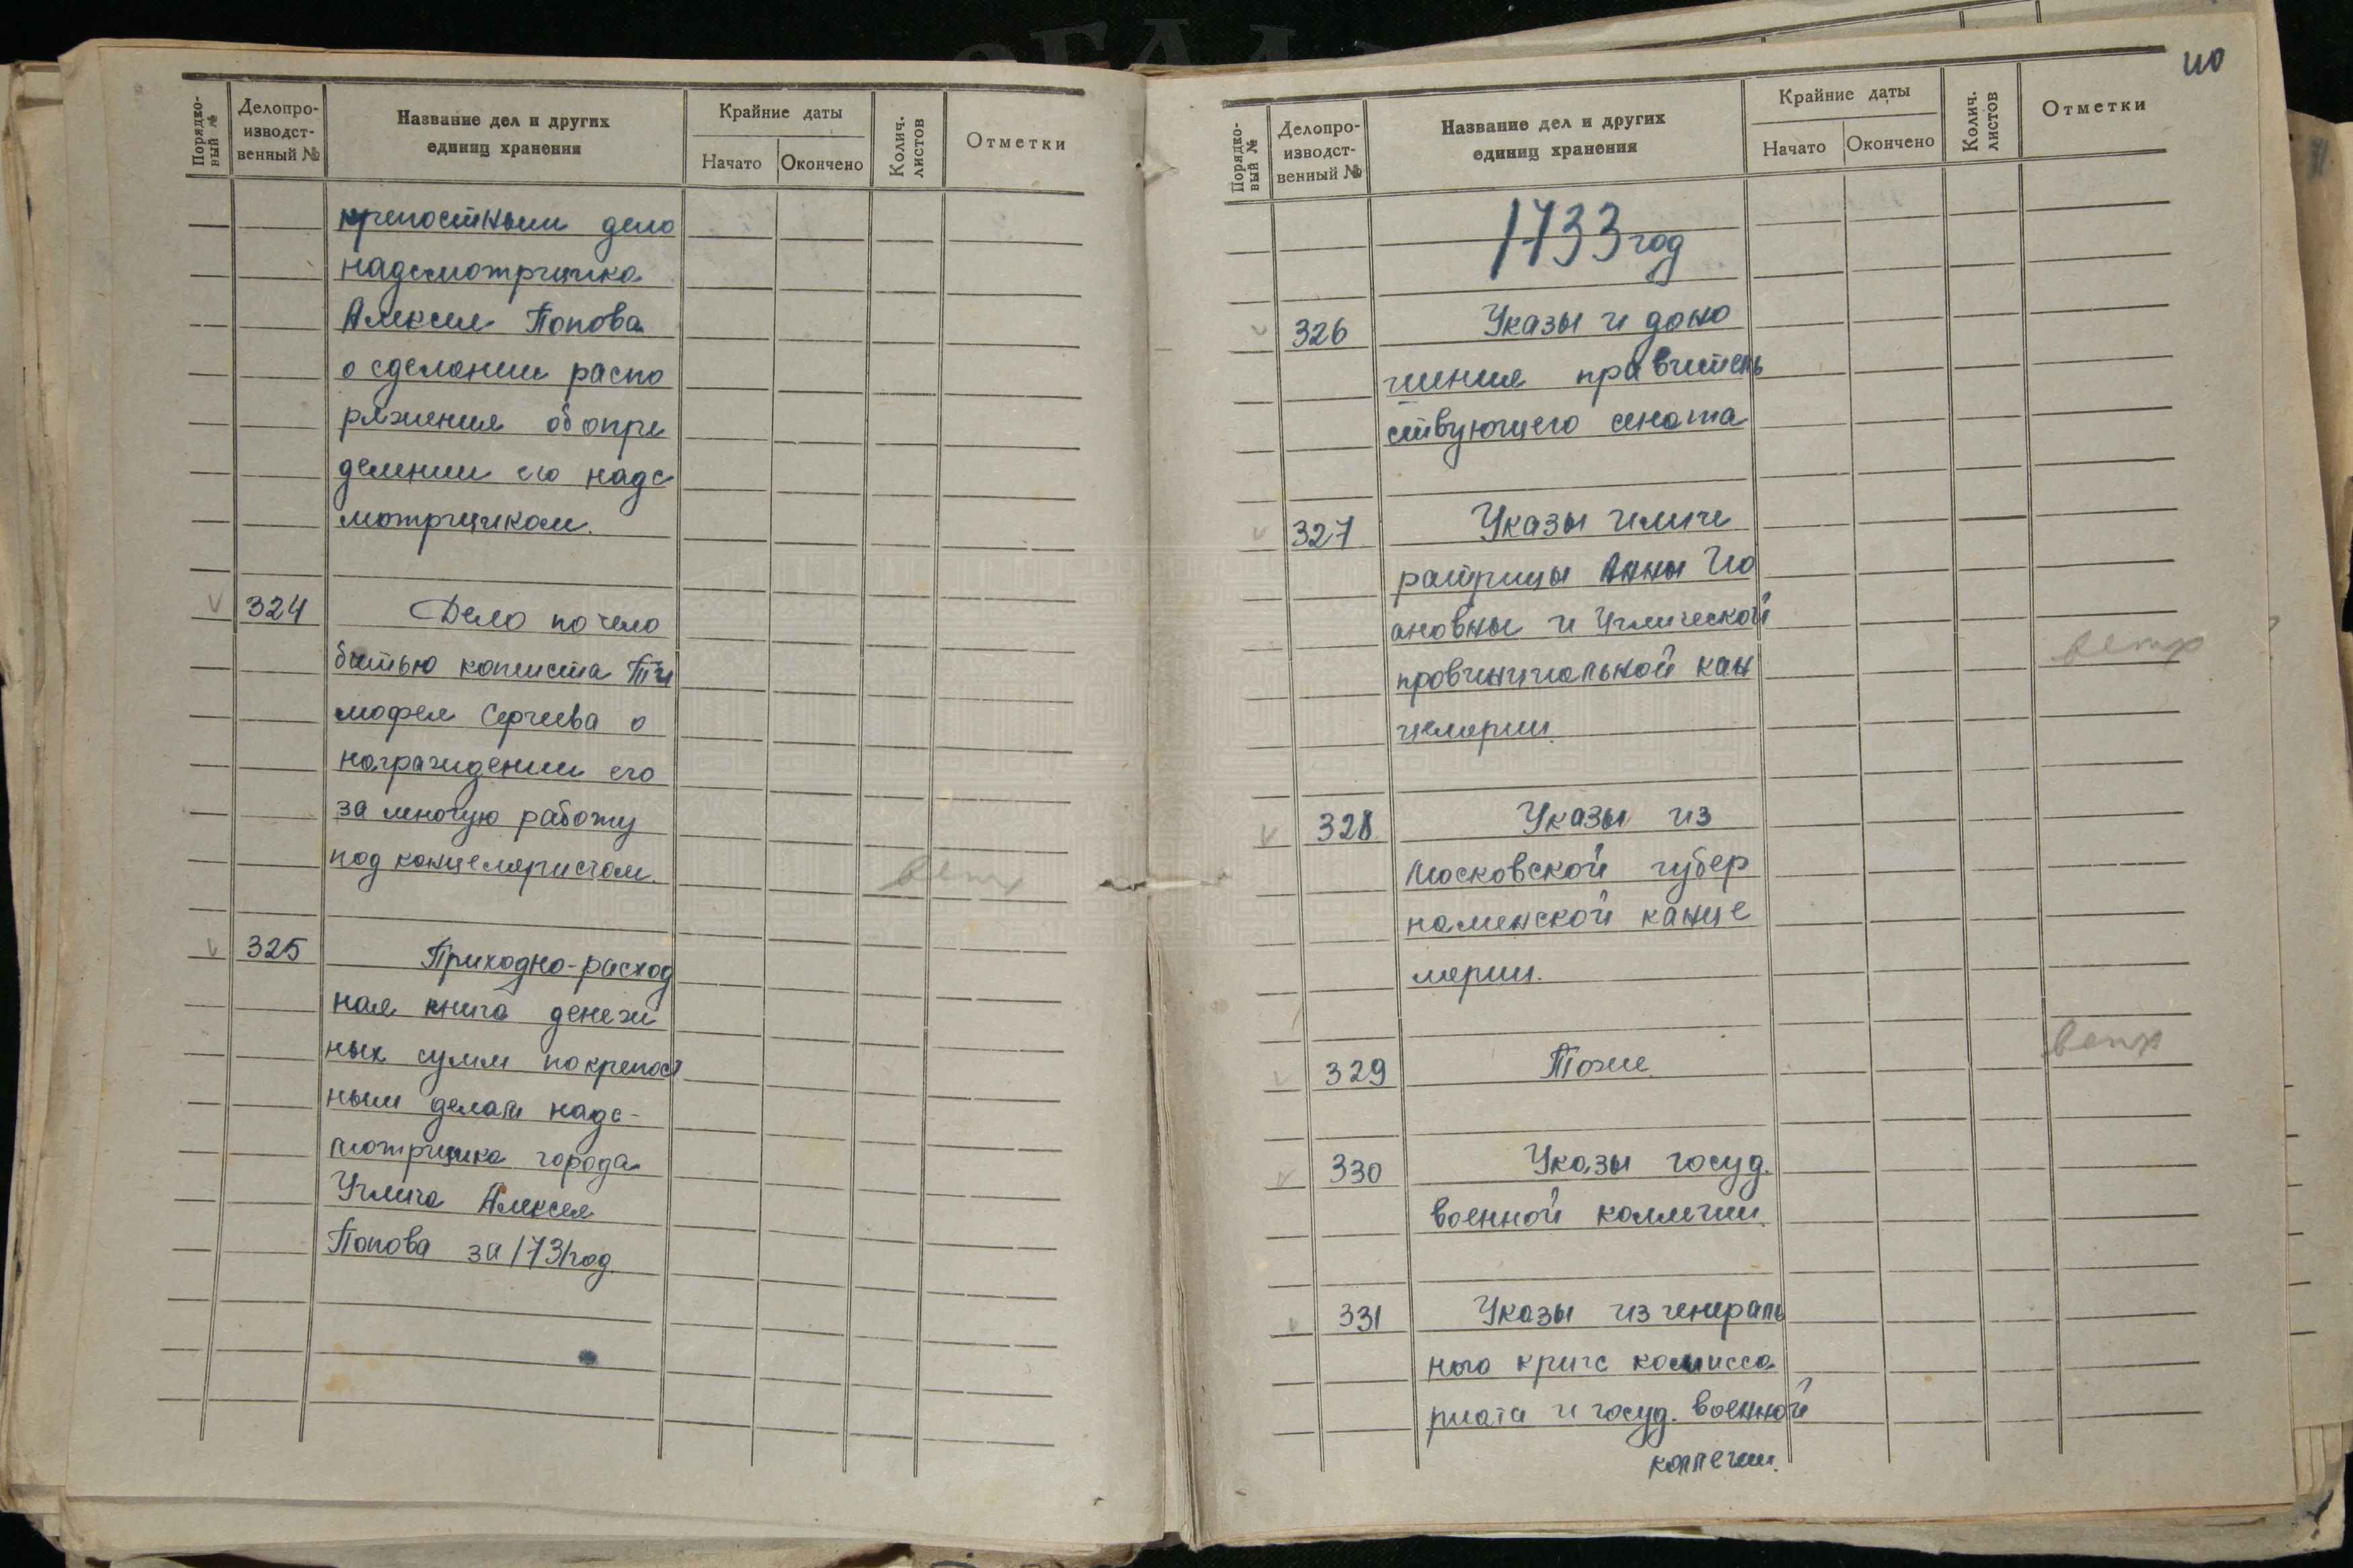 Порядко-
вый №
Делопро-
изводст-
венный №
Название дел и других
единиц хранения
Крайние даты
Начато
Окончено
Колич.
листов
Отметки
крепостным дело
надсмотрщика
Алексея Попова
о сделании распо
ряжения об опре
делении его надс
мотрщиком.
324 Дело по чело
битью кописта Ти
мофея Сергеева о
награждении его
за многую работу
под канцеляристом.
ветх
325 Приходно-расход
ная книга денеж
ных сумм по крепост
ным делам надс-
мотрщика города
Углича Алексея
Попова за 1731 год
110
Порядко-
вый №
Делопро-
изводст-
венный №
Название дел и других
единиц хранения
Крайние даты
Начато
Окончено
Колич.
листов
Отметки
1733 год
326 Указы и доно
шения правитель
ствующего сената
327 Указы импе
ратрицы Анны Ио
ановны и Углической
провинциальной кан
ветх
целярии.
328 Указы из
Московской губер
наменской канце
лярии.
329 Тоже.
ветх
330 Указы госуд.
военной коллегии.
331 Указы из генераль
ного кригс комисса
риата и госуд. военной
коллегии.